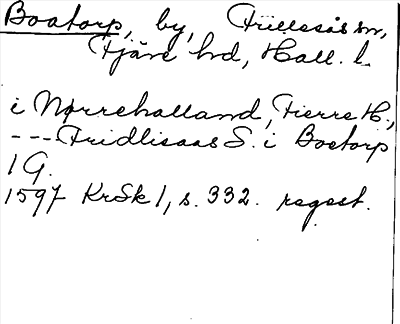 Boatorp, by, Fjillesås sn,
Fjäre hd, Hall. l.
i Nørrehalland, Fierre H.,
--- Fridlisaas S. i Boetorp
1 G.
1597 KrSk 1, s. 332. regest.